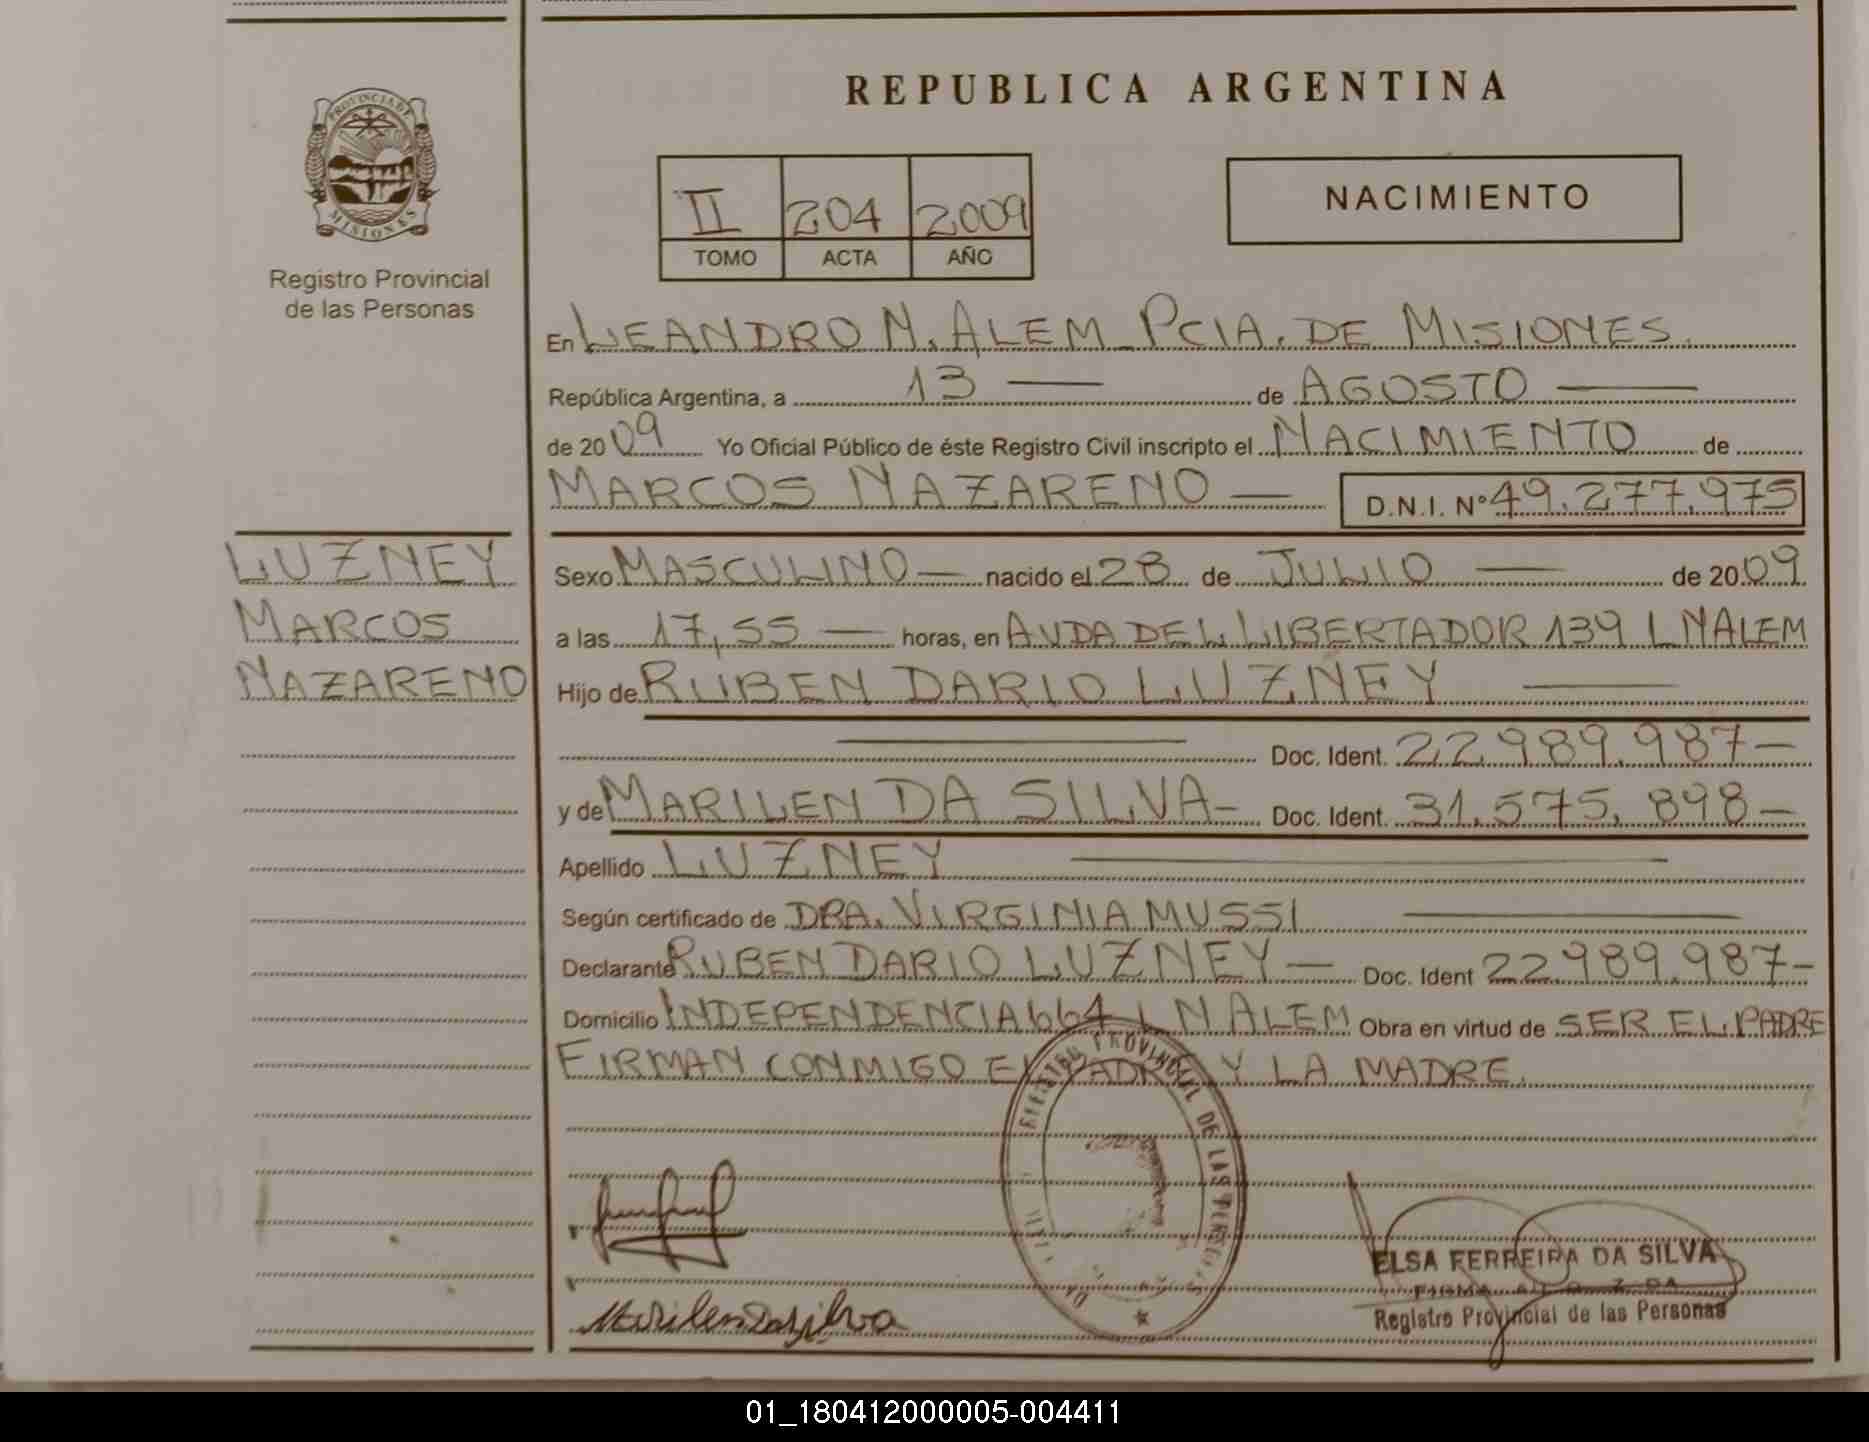 REPUBLICA ARGENTINA
PROVINCIA DE
MISIONES
Registro Provincial
de las Personas
II 204 2009
TOMO ACTA AÑO
NACIMIENTO
En LEANDRO N. ALEM PCIA. DE MISIONES
República Argentina, a 13 de AGOSTO
de 2009 Yo Oficial Público de éste Registro Civil inscripto el NACIMIENTO de
MARCOS NAZARENO D.N.I. N° 49.277.975
LUZNEY
MARCOS
NAZARENO
Sexo MASCULINO nacido el 28 de JULIO de 2009
a las 17,55 horas, en AVDA DEL LIBERTADOR 139 L N ALEM
Hijo de RUBEN DARIO LUZNEY
Doc. Ident. 22.989.987
y de MARILEN DA SILVA Doc. Ident. 31.575.898
Apellido LUZNEY
Según certificado de DRA. VIRGINIA MUSSI
Declarante RUBEN DARIO LUZNEY Doc. Ident 22.989.987
Domicilio INDEPENDENCIA 664 L N ALEM Obra en virtud de SER EL PADRE
FIRMAN CONMIGO EL PADRE Y LA MADRE.
REGISTRO PROVINCIAL DE LAS PERSONAS
Marilen Da silva
ELSA FERREIRA DA SILVA
FIRMA
Registro Provincial de las Personas
01_180412000005-004411